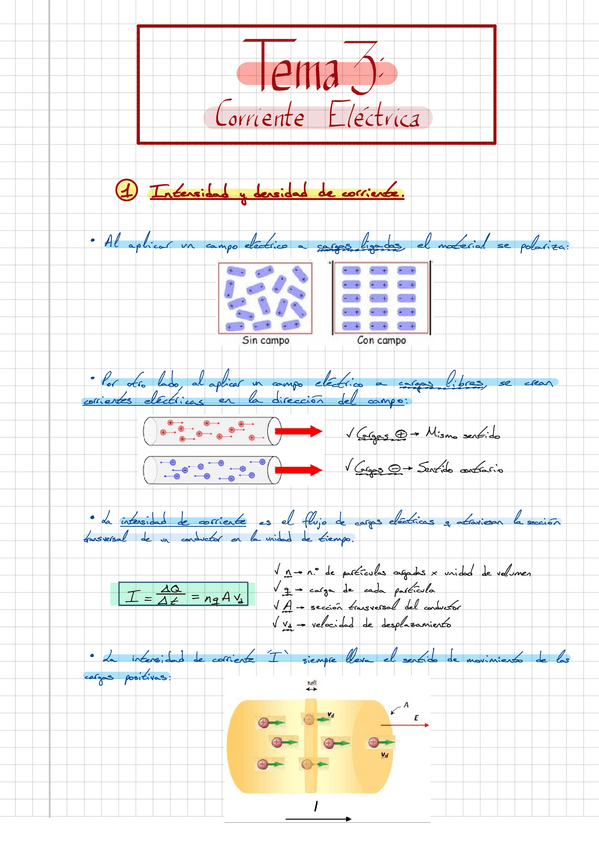 Tema 3:
Corriente Eléctrica
1 Intensidad y densidad de corriente.
• Al aplicar un campo eléctrico a cargas ligadas, el material se polariza:
Sin campo Con campo
• Por otro lado, al aplicar un campo eléctrico a cargas libres, se crean
corrientes eléctricas en la dirección del campo:
√ Cargas ⊕ → Mismo sentido
√ Cargas ⊖ → Sentido contrario
• La intensidad de corriente es el flujo de cargas eléctricas q atraviesan la sección
transversal de un conductor en la unidad de tiempo.
I = ΔQ/Δt = nqAv_d
√ n → n.º de partículas cargadas x unidad de volumen
√ q → carga de cada partícula
√ A → sección transversal del conductor
√ v_d → velocidad de desplazamiento
• La intensidad de corriente "I" siempre lleva el sentido de movimiento de las
cargas positivas:
v_d
A
E
v_d
I